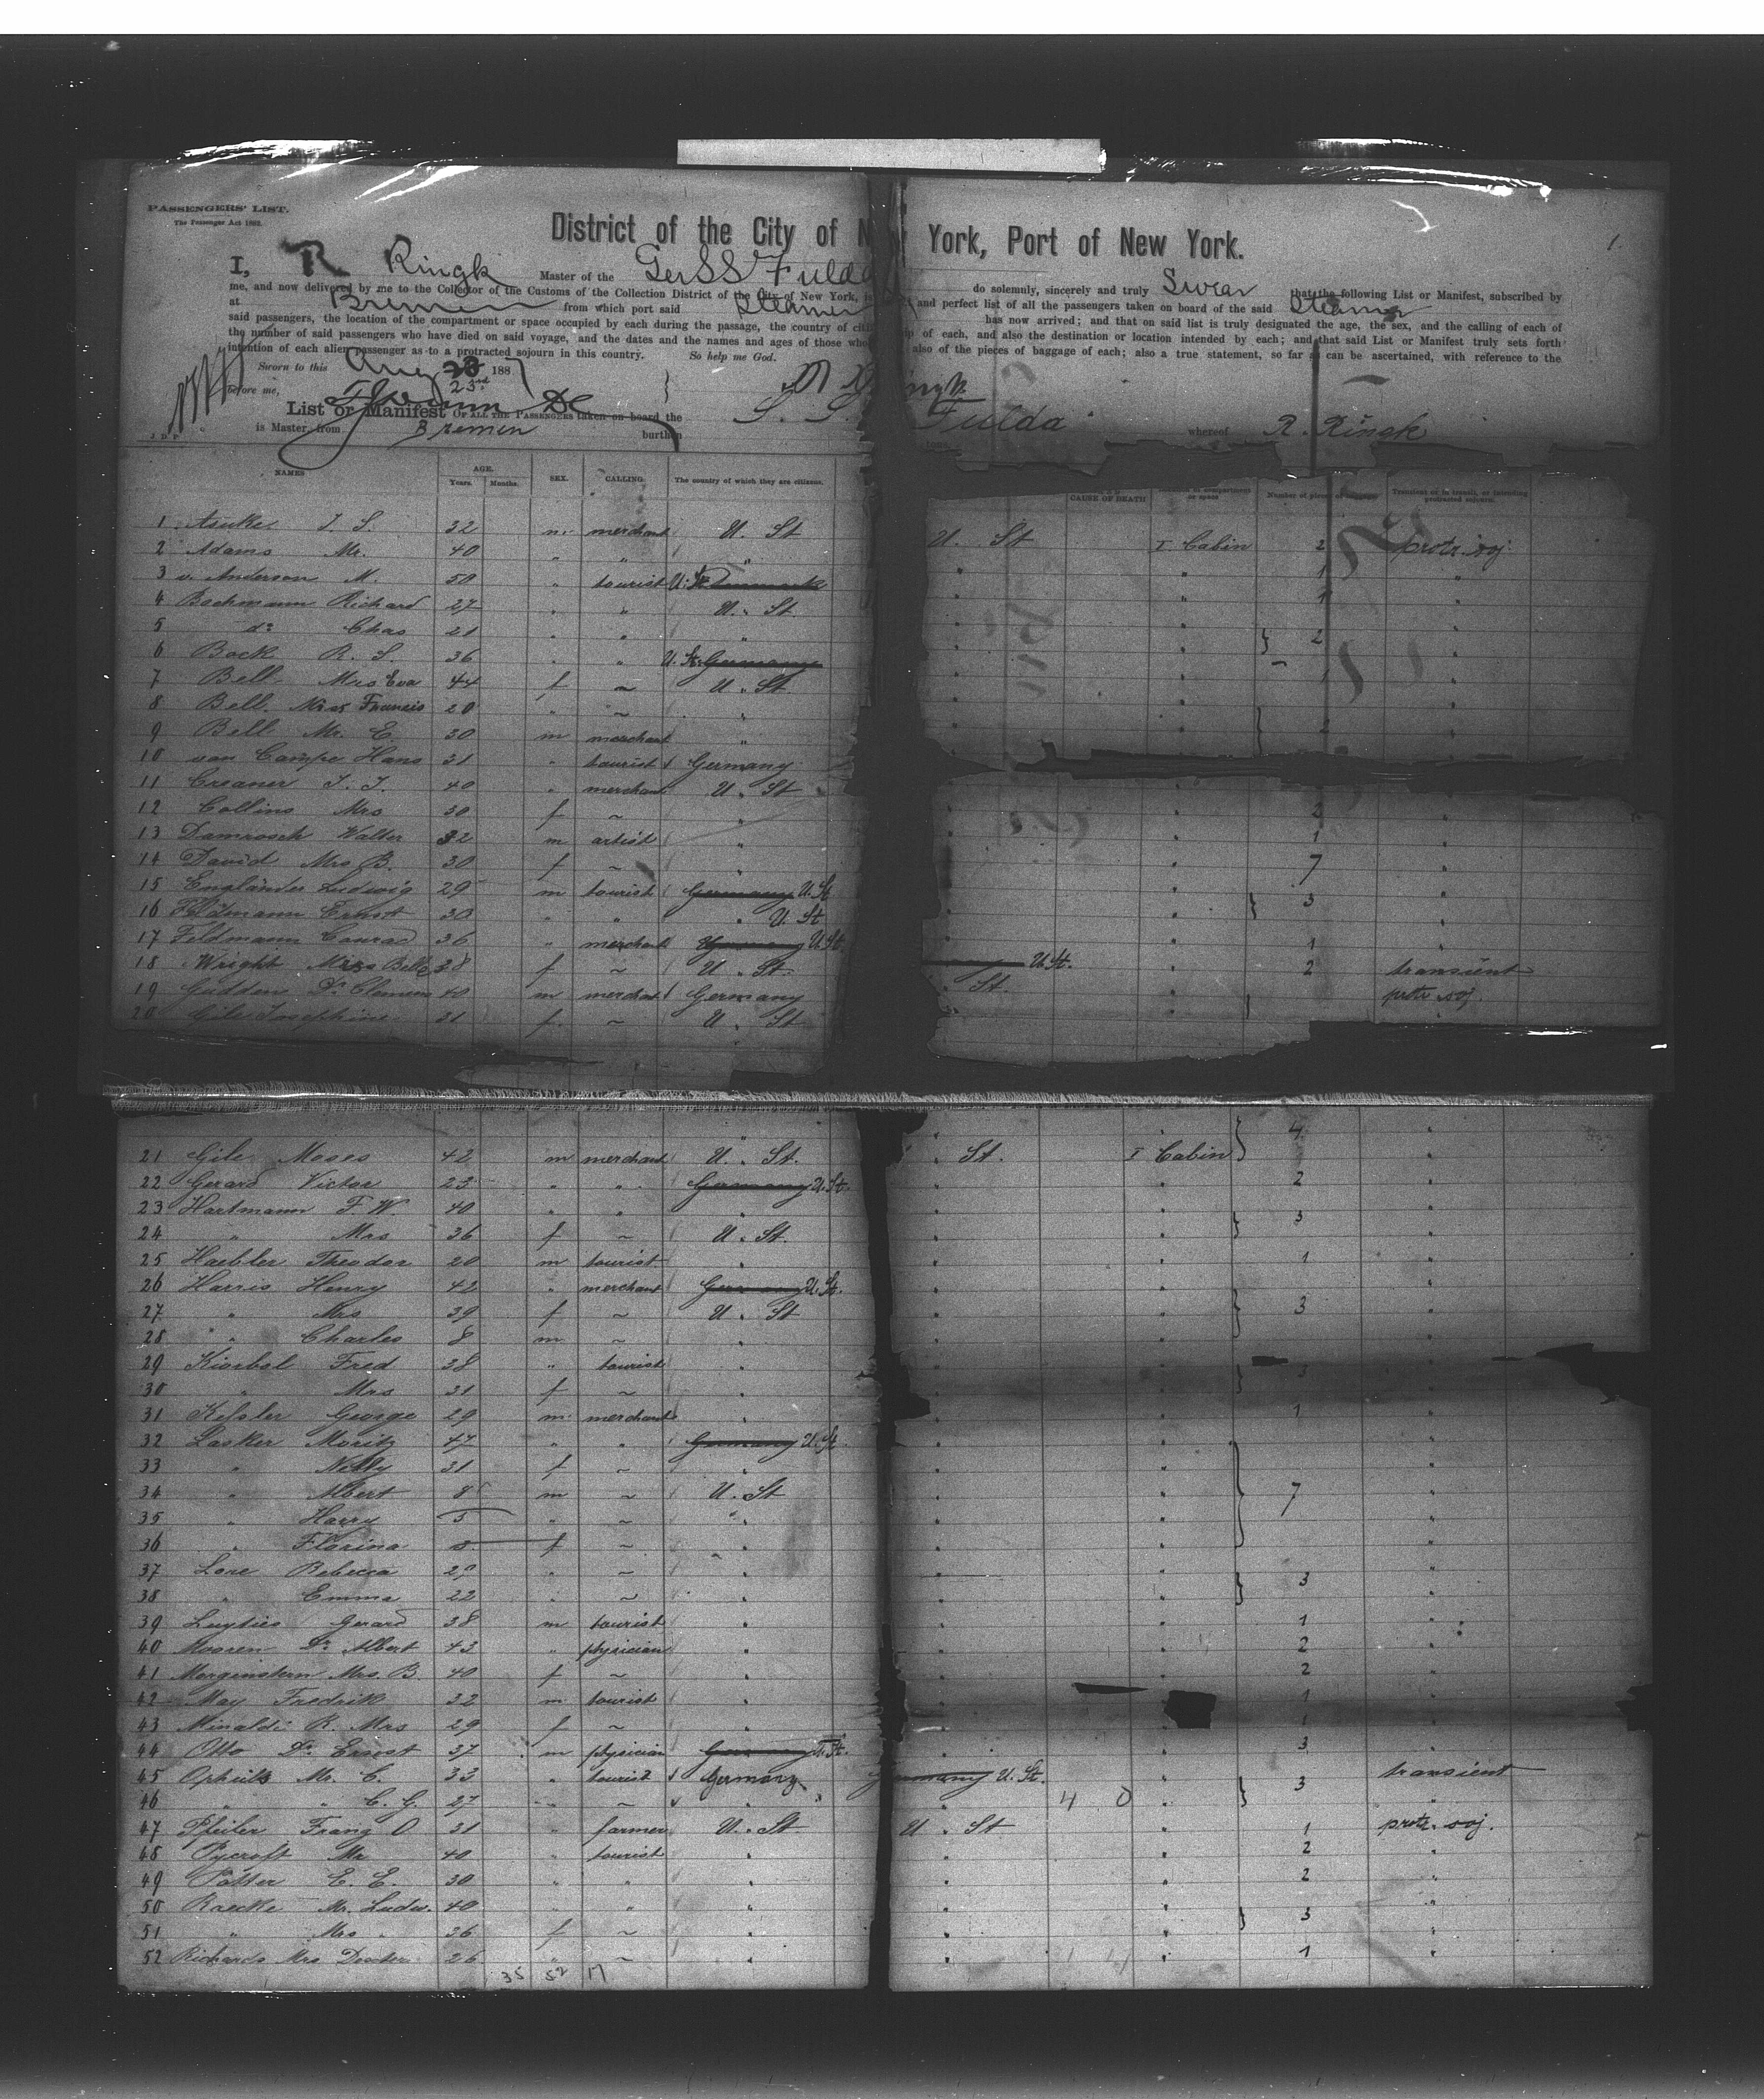 PASSENGERS' LIST.
The Passenger Act 1882.
District of the City of New York, Port of New York.
1.
I, R Ringk Master of the Ger SS Fulda do solemnly, sincerely and truly Swear that the following List or Manifest, subscribed by
me, and now delivered by me to the Collector of the Customs of the Collection District of the City of New York, is and perfect list of all the passengers taken on board of the said Steamer
at Bremen from which port said Steamer has now arrived; and that on said list is truly designated the age, the sex, and the calling of each of
said passengers, the location of the compartment or space occupied by each during the passage, the country of citi p of each, and also the destination or location intended by each; and that said List or Manifest truly sets forth
the number of said passengers who have died on said voyage, and the dates and the names and ages of those who also of the pieces of baggage of each; also a true statement, so far as can be ascertained, with reference to the
intention of each alien passenger as to a protracted sojourn in this country. So help me God.
Sworn to this Aug 23rd 1887
before me,
List or Manifest OF ALL THE PASSENGERS taken on board the S. S. Fulda whereof R. Ringk
is Master, from Bremen burthen tons
NAMES AGE. Years. Months. SEX. CALLING. The country of which they are citizens. CAUSE OF DEATH compartment or space Number of pieces Transient or in transit, or intending protracted sojourn.
1 J. S. 32 m. merchant U. St U. St I Cabin 2 protr. soj.
2 Adams Mr. 40 " " " " " 1 "
3 v. Anderson M. 50 " tourist U. St. Denmark " " 1 "
4 Bachmann Richard 27 " " U. St " " } 2 "
5 do Chas 21 " " " " " "
6 Bock R. S. 36 " " U. St. Germany " " 1 "
7 Bell Mrs Eva 44 f ~ U. St " " } 2 "
8 Bell Miss Francis 20 " ~ " " " "
9 Bell Mr. E. 30 m merchant "
10 van Campe Hans 31 " tourist Germany
11 Creaner J. J. 40 " merchant U. St " " 2 "
12 Collins Mrs 50 f ~ " " " 1 "
13 Damrosch Walter 32 m artist " " " 7 "
14 David Mrs B. 30 f ~ " " " } 3 "
15 Engländer Ludwig 29 m tourist Germany U. St " " "
16 Feldmann Ernst 30 " " " U. St " " 1 "
17 Feldmann Conrad 36 " merchant Germany U. St. U. St. " 2 transient
18 Wright Miss Belle 38 f ~ U. St. St. protr. soj.
19 Gudden Dr Clemens 40 m merchant Germany
20 Gile Josephine 31 f. ~ U. St
21 Gile Moses 42 m merchant U. St. St. I Cabin } 4 "
22 Gerard Victor 23 " " Germany U. St. " " 2 "
23 Hartmann F. W. 40 " " " " " } 3 "
24 " Mrs 36 f ~ U. St. " " "
25 Haebler Theodor 20 m tourist " " " 1 "
26 Harris Henry 42 " merchant Germany U. St. " " } 3 "
27 " Mrs 39 f ~ U. St " " "
28 " Charles 8 m ~ " " " "
29 Kiorbol Fred 38 " tourist " " " } 3 "
30 " Mrs 31 f ~ " " " "
31 Keßler George 29 m. merchant " " " 1 "
32 Lasker Moritz 47 " " Germany U. St " " } 7 "
33 " Nelly 31 f ~ " " " "
34 " Albert 8 m ~ U. St " " "
35 " Harry 5 " ~ " " " "
36 " Florina f ~ " " " "
37 Lore Rebecca 29 " ~ " " " } 3 "
38 " Emma 22 " ~ " " " "
39 Luyties Gerard 38 m tourist " " " 1 "
40 Mooren Dr Albert 43 " physician " " " 2 "
41 Morginstern Mrs. B. 40 f ~ " " " 2 "
42 May Fredrik 32 m tourist " " 1 "
43 Minaldi R. Mrs 29 f ~ " " " 1 "
44 Otto Dr Ernst 37 m physician Germany U. St. " " 3 "
45 Ophüls Mr. C. 33 " tourist Germany Germany U. St. " } 3 transient
46 " " C. G. 27 " ~ " " 4 0 " "
47 Pfeiler Franz O 31 " farmer U. St U. St " 1 protr. soj.
48 Pycroft Mr 40 " tourist " " " 2 "
49 Potter E. E. 30 " " " " " 2 "
50 Raecke Mr. Ludw. 40 " " " " " } 3 "
51 " Mrs " 36 f ~ " " " "
52 Richards Mrs Dexter 26 " ~ " " " 1 "
35 52 17